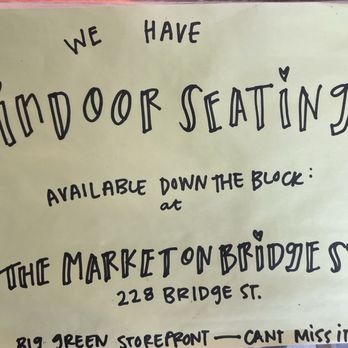 WE HAVE
INDOOR SEATING
AVAILABLE DOWN THE BLOCK:
at
THE MARKET ON BRIDGE S
228 BRIDGE ST.
BIG GREEN STOREFRONT — CANT MISS IT